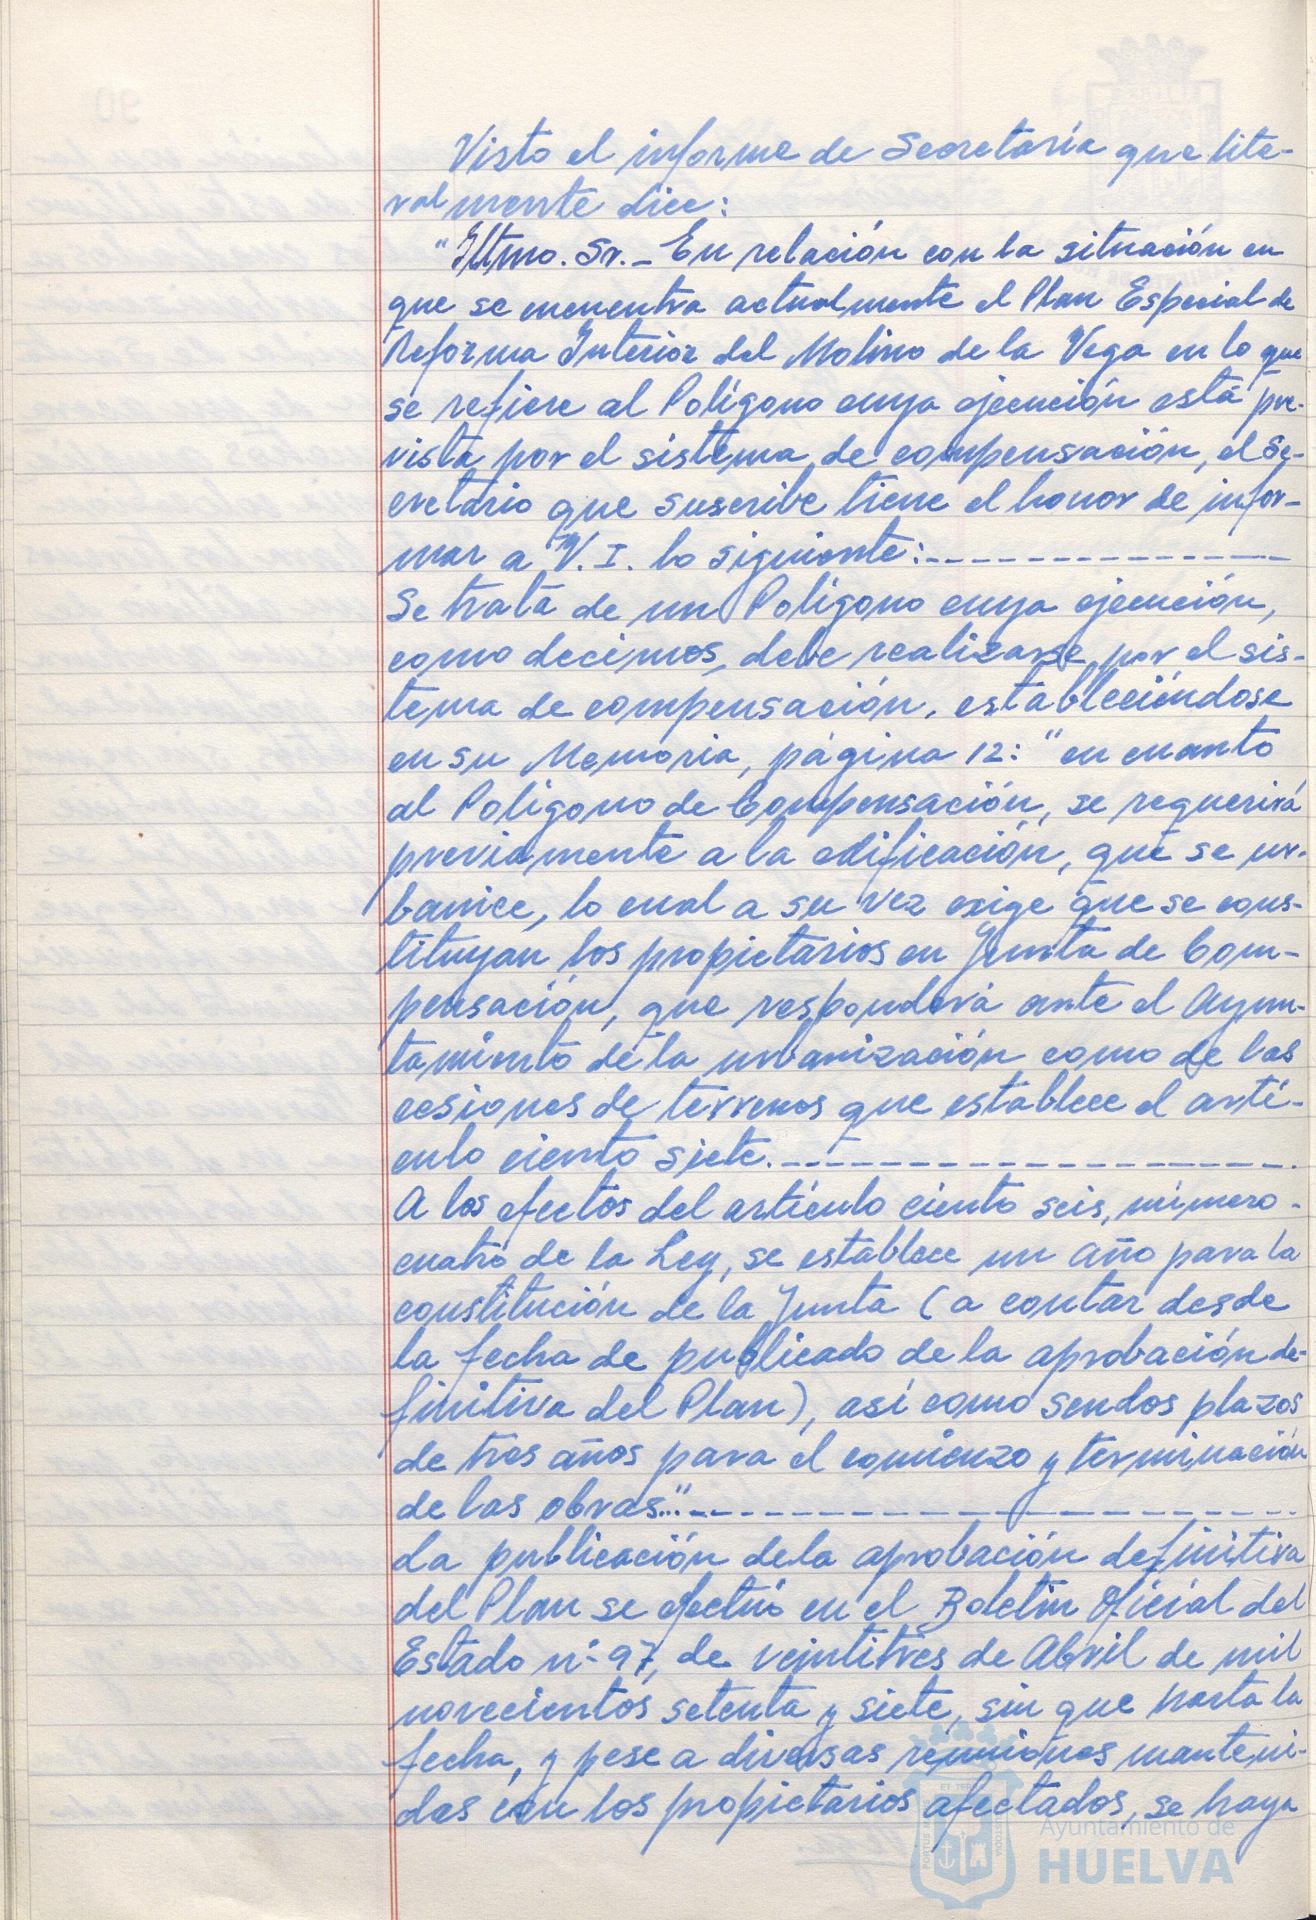 Visto el informe de Secretaría que lite-
ralmente dice:
"Iltmo. Sr.- En relación con la situación en
que se encuentra actualmente el Plan Especial de
Reforma Interior del Molino de la Vega en lo que
se refiere al Polígono cuya ejecución está pre-
vista por el sistema de compensación, el Se-
cretario que suscribe tiene el honor de infor-
mar a V.I. lo siguiente:---------------
Se trata de un Polígono cuya ejecución,
como decimos, debe realizarse por el sis-
tema de compensación, estableciéndose
en su Memoria, página 12: "en cuanto
al Polígono de Compensación, se requerirá
previamente a la edificación, que se ur-
banice, lo cual a su vez exige que se cons-
tituyan los propietarios en Junta de Com-
pensación, que responderá ante el Ayun-
tamiento de la urbanización como de las
cesiones de terrenos que establece el artí-
culo ciento siete.---------------------
A los efectos del artículo ciento seis, número-
cuatro de la Ley, se establece un año para la
constitución de la Junta (a contar desde
la fecha de publicado de la aprobación de-
finitiva del Plan), así como sendos plazos
de tres años para el comienzo y terminación
de las obras..."----------------------
La publicación de la aprobación definitiva
del Plan se efectúo en el Boletín Oficial del
Estado nº 97, de veintitres de Abril de mil
novecientos setenta y siete, sin que hasta la
fecha, y pese a diversas reuniones manteni-
das con los propietarios afectados, se haya
Ayuntamiento de
HUELVA